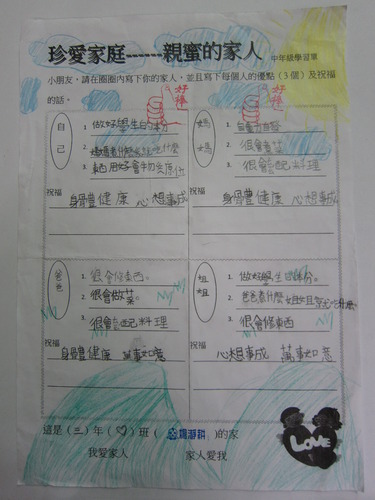 珍愛家庭------親蜜的家人 中年級學習單
小朋友，請在圈圈內寫下你的家人，並且寫下每個人的優點（3個）及祝福
的話。
好棒
好棒
自己
1. 做好學生的本分
2.
3. 東西用好會物歸原位
祝福
身體豐健康 心想事成
媽媽
1.
2. 很會畫畫
3. 很會配料理
祝福
身體豐健康 心想事成
爸爸
1. 很會修東西。
2. 很會做菜。
3. 很會配料理
祝福
身體豐健康 萬事如意
姐姐
1. 做好學生的本分。
2.
3. 很會修東西
祝福
心想事成 萬事如意
LOVE
這是（三）年（♡）班（ ）的家
我愛家人 家人愛我